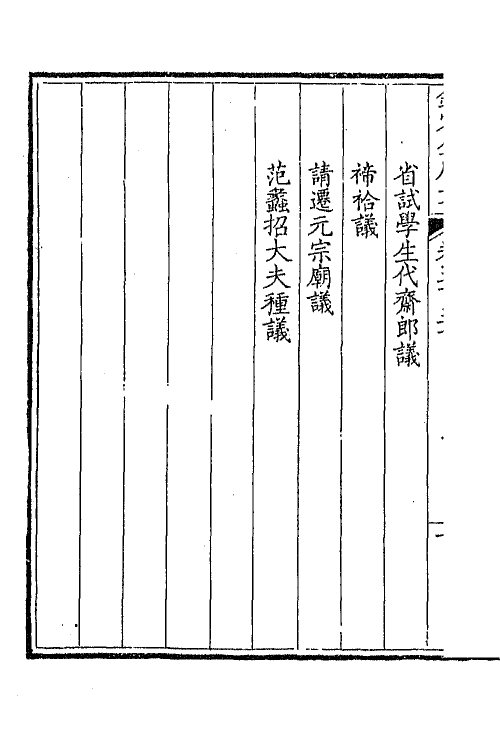 省試學生代齋郎議
禘祫議
請遷元宗廟議
范蠡招大夫種議